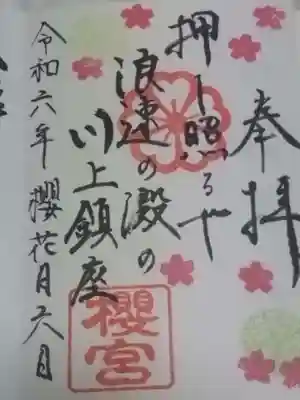 奉拝
押し照るや
浪速の澱の
川上鎮座
令和六年 櫻花月六日
櫻宮